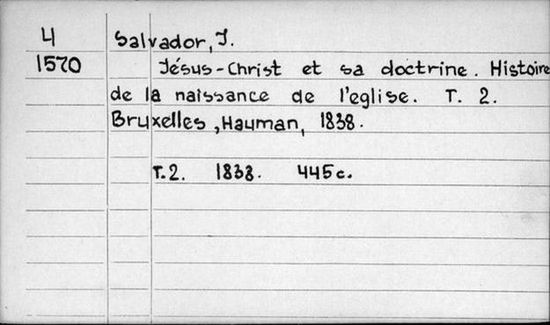 4 Salvador, J.
1570 Jésus-Christ et sa doctrine. Histoire
de la naissance de l'eglise. T. 2.
Bruxelles, Hauman, 1838.
T.2. 1838. 445c.